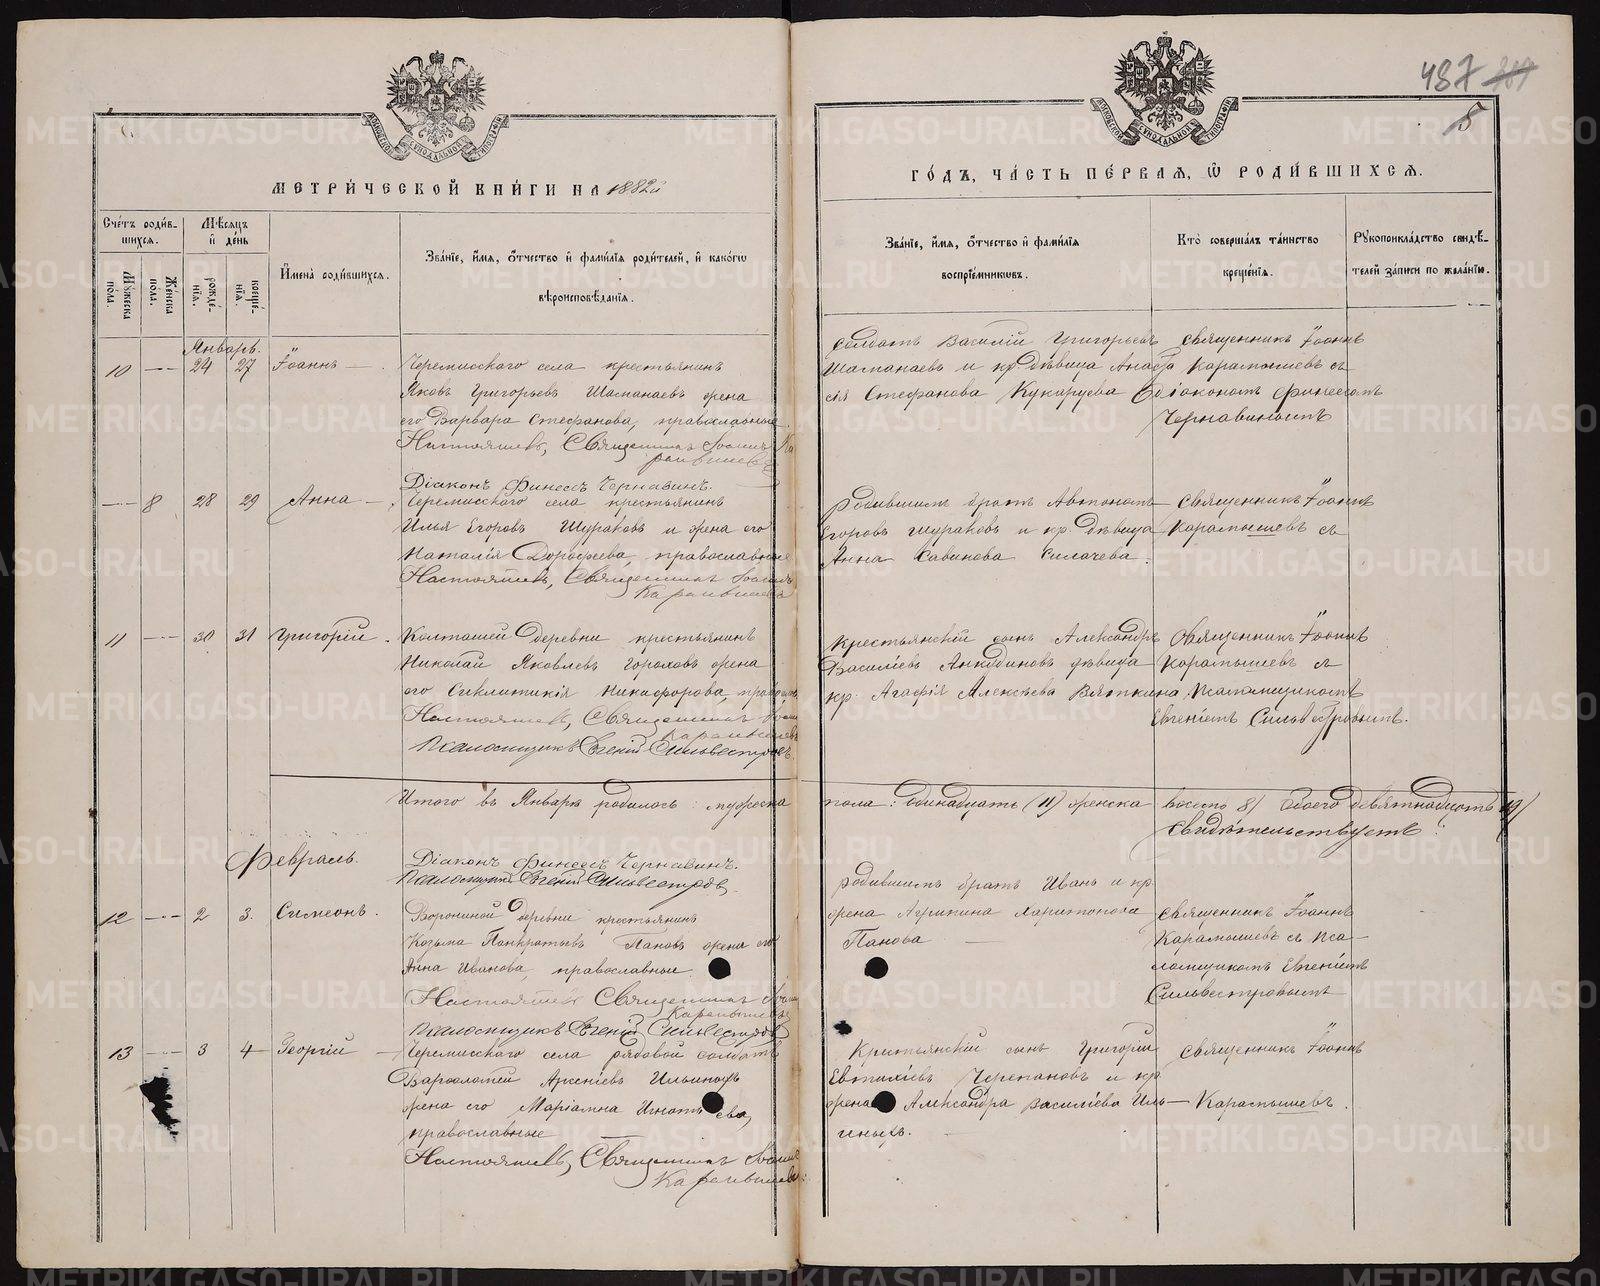 487 347
5
МОСКОВСКОЙ СѴНОДАЛЬНОЙ ТИПОГРАФІИ
МОСКОВСКОЙ СѴНОДАЛЬНОЙ ТИПОГРАФІИ
МЕТРИ́ЧЕСКОЙ КНИ́ГИ НА 1882й
ГО́ДЪ, ЧА́СТЬ ПЕ́РВАЯ, Ѿ РОДИ́ВШИХСЯ.
Сче́тъ роди́в-
шихся.
Мꙋ́жеска по́ла.
Же́нска по́ла.
Мѣ́сяцъ и де́нь
рожде́-нїя.
креще́-нїя.
И҆мена̀ роди́вшихся.
Зва́нїе, и҆́мя, ѻ҆́тчество и҆ фами́лїя роди́телей, и҆ како́гѡ
вѣроисповѣ́данїя.
Зва́нїе, и҆́мя, ѻ҆́тчество и҆ фами́лїя
воспрїе́мниковъ.
Кто̀ соверша́лъ та́инство
креще́нїя.
Рꙋкоприкла́дство свидѣ́-
телей за́писи по жела́нїю.
Январь.
10 — 24 27 Іоаннъ —.
Черемисскаго села крестьянинъ
Яковъ Григорьевъ Шаманаевъ жена
его Варвара Стефанова, православные.
Настоятель, Священникъ Іоаннъ Ка
рамышевъ
Діаконъ Финеесъ Чернавинъ.
солдатъ Василій Григорьевъ
Шаманаевъ и кр. дѣвица Анаста
сія Стефанова Кукаруева
Священникъ Іоаннъ
Карамышевъ съ
Діакономъ Финеесомъ
Чернавинымъ
— 8 28 29 Анна —.
Черемисскаго села крестьянинъ
Илья Егоровъ Шураковъ и жена его
Наталія Дорофеева, православные
Настоятель, Священникъ Іоаннъ
Карамышевъ
родившимъ братъ Автономъ
Егоровъ Шураковъ и кр. дѣвица
Анна Савинова Силачева.
Священникъ Іоаннъ
Карамышевъ съ
11 — 30 31 Григорій.
Колташей деревни крестьянинъ
Николай Яковлевъ Гороховъ жена
его Сиклитикія Никифорова, правосл
Настоятель, Священникъ Іоаннъ
Карамышевъ
Псаломщикъ Евгеній Сильвестровъ
Крестьянскій сынъ Александръ
Василіевъ Анкудиновъ дѣвица
кр. Агафія Алексѣева Вяткина
Священникъ Іоаннъ
Карамышевъ съ
Псаломщикомъ
Евгеніемъ Сильвестровымъ.
Итого въ Январѣ родилось: мужеска
пола: одинадцать (11) женска восемь 8) Всего девятнадцать 19)
Свидѣтельствуетъ:
Февраль.
Діаконъ Финеесъ Чернавинъ.
Псаломщикъ Евгеній Сильвестровъ
12 — 2 3. Симеонъ.
Ворониной деревни крестьянинъ
Козьма Панкратьевъ Пановъ жена его
Анна Иванова, православные
Настоятель Священникъ Іоаннъ
Карамышевъ
Псаломщикъ Евгеній Сильвестровъ
родившимъ братъ Иванъ и кр.
жена Агрипина Харитонова
Панова —
Священникъ Іоаннъ
Карамышевъ съ Пса-
ломщикомъ Евгеніемъ
Сильвестровымъ
13 — 3 4 Георгій —
Черемисскаго села рядовой солдатъ
Варфоломей Арсеніевъ Ильиныхъ
жена его Маріамна Игнатьева,
православные
Настоятель, Священникъ Іоаннъ
Карамышевъ.
Крестьянскій сынъ Григорій
Евтихіевъ Черепановъ и кр.
жена Александра Василіева Иль-
иныхъ.
Священникъ Іоаннъ
Карамышевъ.
METRIKI.GASO-URAL.RU